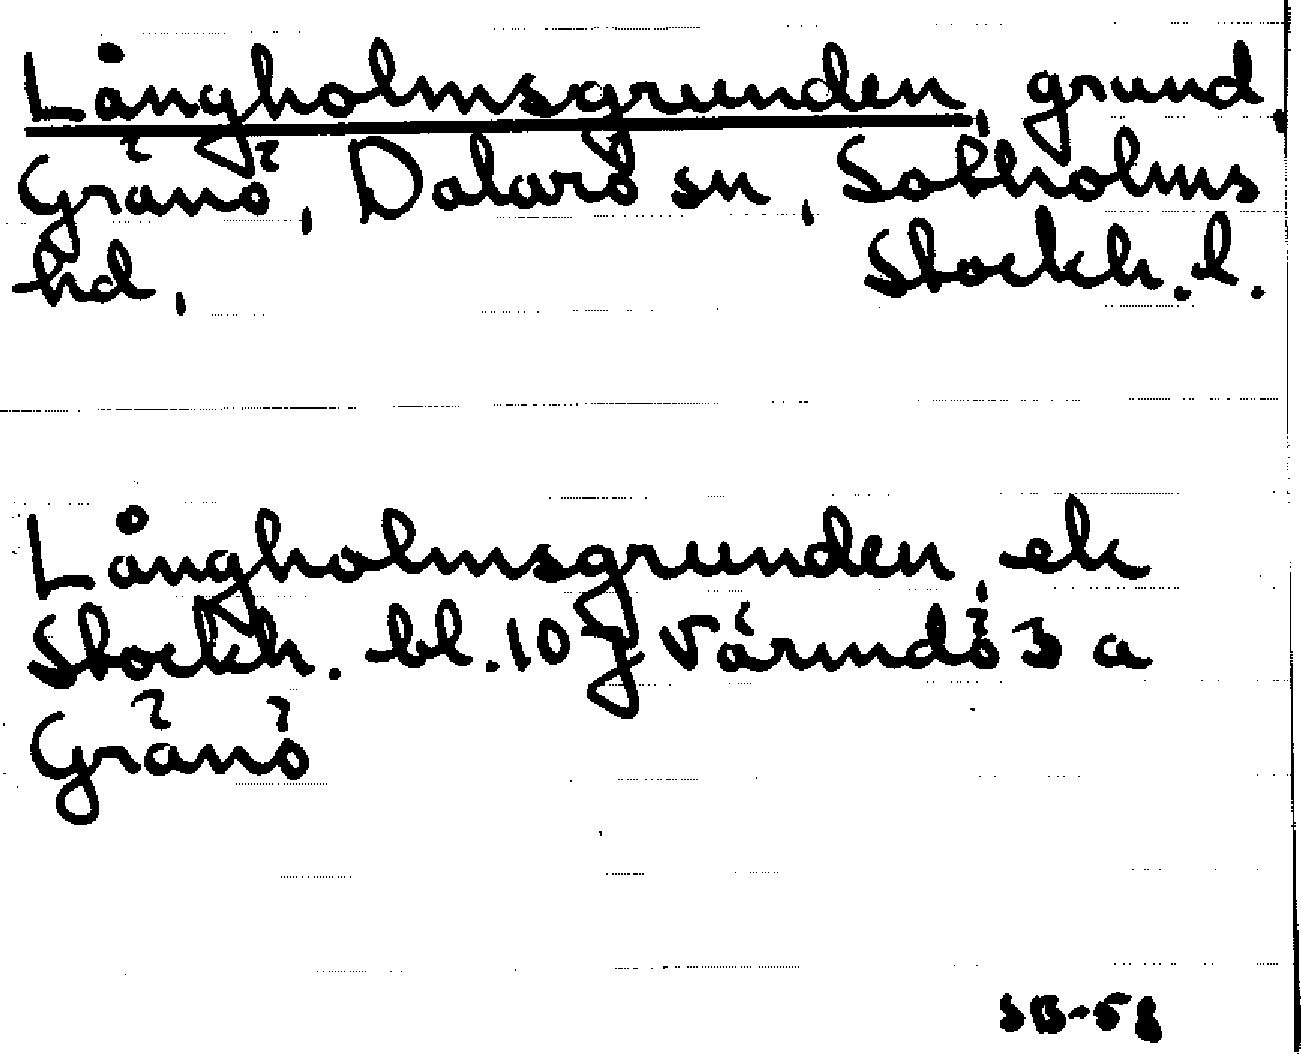 Långholmsgrunden, grund,
Gränö, Dalarö sn, Sotholms
hd, Stockh. l.
Långholmsgrunden, ek
Stockh. bl. 10 j Värmdö 3 a
Gränö
SB-58